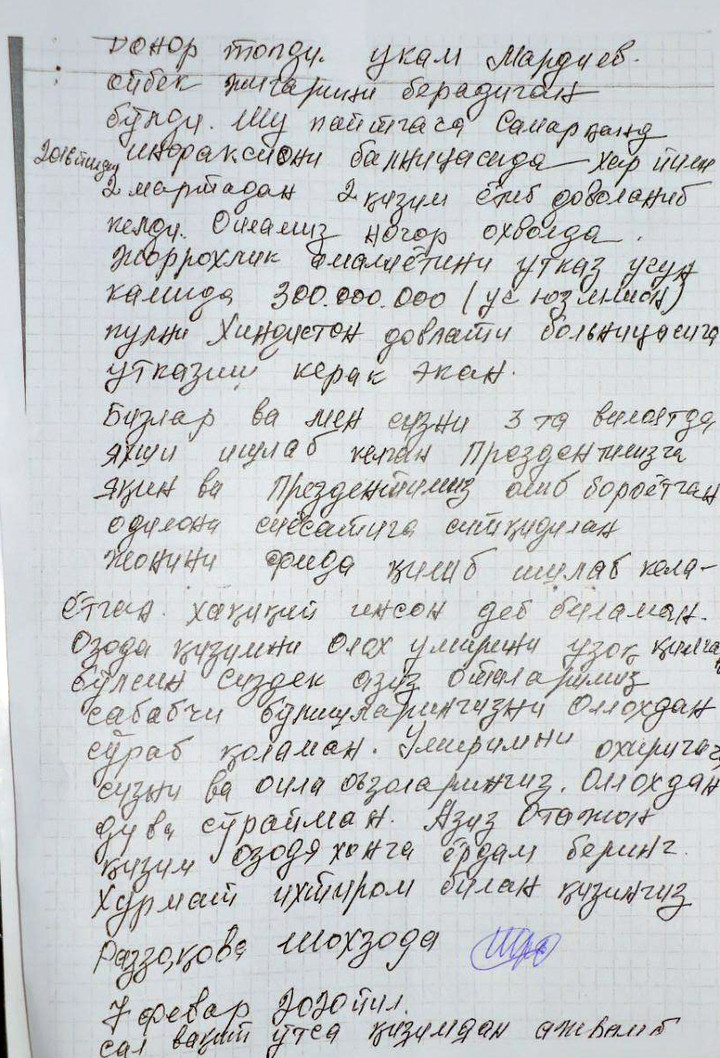 донор топди. укам Мардиев.
ойбек жигарини берадиган
бўлди. Шу пайтгача Самарқанд
2018 йилдан инфраксиони балницасида хар йили
2 мартадан 2 қизим ётиб даволаниб
келди. Оиламиз ночор охволда.
Жоррохлик амалиётини утказ учун
камида 300.000.000 (уч юз млион)
пулни Хиндистон довлати больницасига
утказиш керак экан.
Бизлар ва мен сизни 3 та вилоятда
яхши ишлаб келган Президентимизга
яқин ва Президентимиз олиб бораётган
одилона сиёсатига ситқидилан
жонини фидо қилиб ишлаб кела-
ётган. хақиқий инсон деб биламан.
Озода қизимни Олах умирини узоқ қилган
бўлсин Сиздек азиз оталаримиз
сабабчи бўлишларингизни Оллохдан
сўраб қоламан. Умиримни охиригача
сизни ва оила аъзоларингиз. Оллохдан
дува сўрайман. Азиз Отажон
қизим озодя хонга ёрдам беринг.
Хурмат ихтиром билан қизингиз
Раззақова Шохзода
7 февар 2020 йил.
сал вақит ўтса қизимдан ажралиб